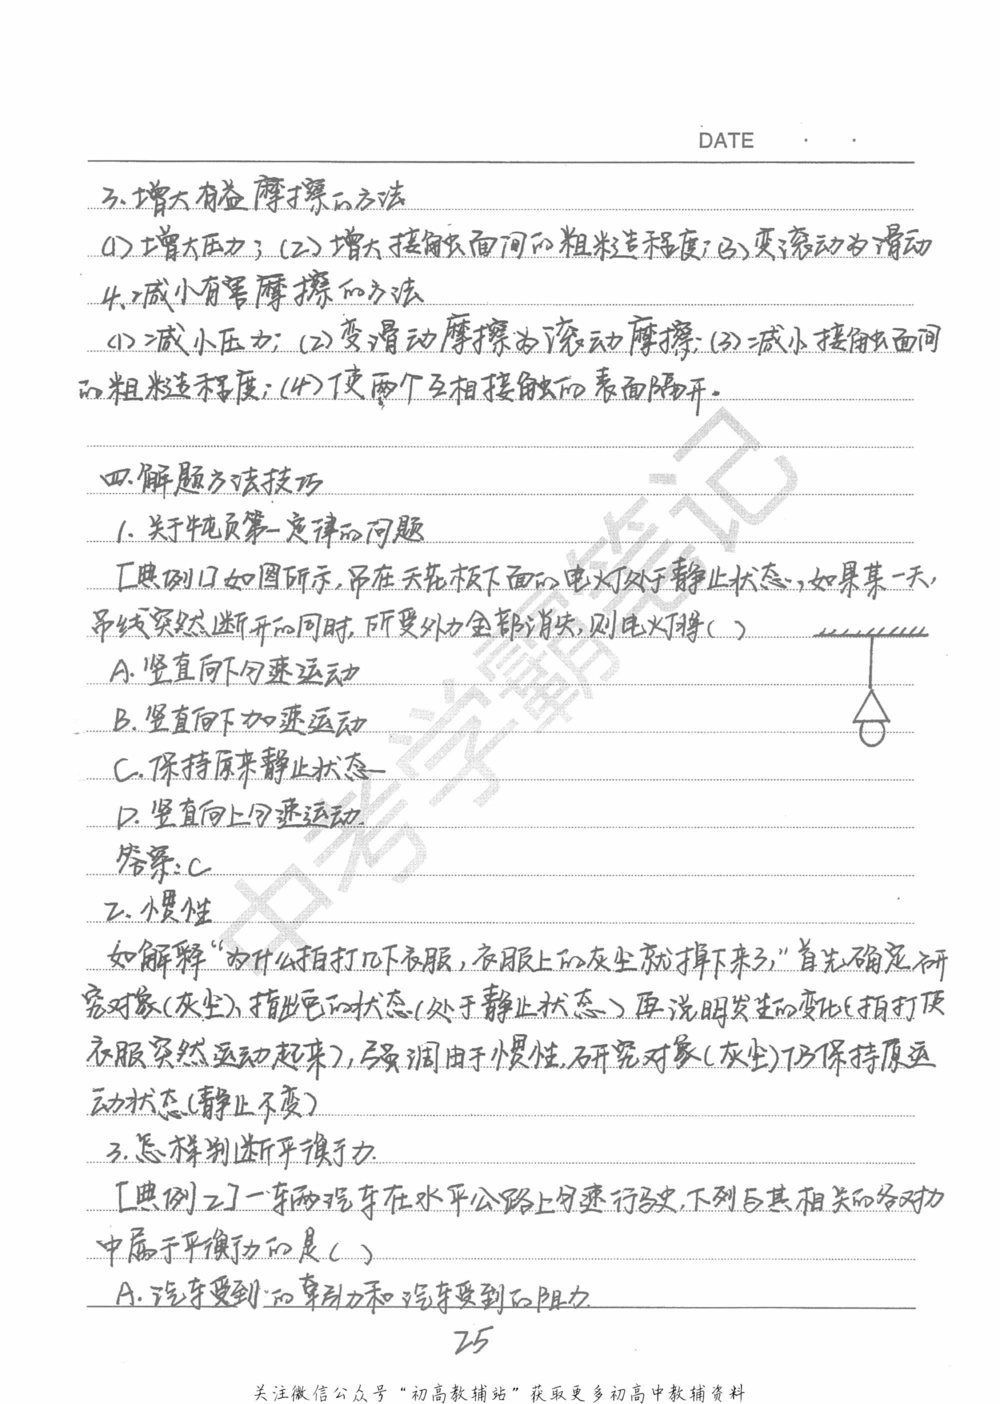 DATE · ·
3.增大有益摩擦的方法
(1)增大压力；(2)增大接触面间的粗糙程度；(3)变滚动为滑动
4.减小有害摩擦的方法
(1)减小压力；(2)变滑动摩擦为滚动摩擦；(3)减小接触面间
的粗糙程度；(4)使两个互相接触的表面隔开。
四.解题方法技巧
1.关于牛顿第一定律的问题
[典例1]如图所示,吊在天花板下面的电灯处于静止状态,如果某一天,
吊线突然断开的同时,所受外力全部消失,则电灯将( )
A.竖直向下匀速运动
B.竖直向下加速运动
C.保持原来静止状态
D.竖直向上匀速运动.
答案:C
2.惯性
如解释“为什么拍打几下衣服,衣服上的灰尘就掉下来了,”首先确定研
究对象(灰尘),指出它的状态(处于静止状态)再说明发生的变化(拍打使
衣服突然运动起来),强调由于惯性,研究对象(灰尘)仍保持原运
动状态(静止不变)
3.怎样判断平衡力.
[典例2]一辆汽车在水平公路上匀速行驶,下列与其相关的各对力
中属于平衡力的是( )
A.汽车受到的牵引力和汽车受到的阻力.
25
关注微信公众号“初高教辅站”获取更多初高中教辅资料
中考学霸笔记